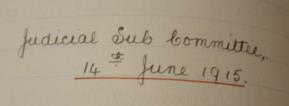 Judicial Sub Committee,
14th June 1915.